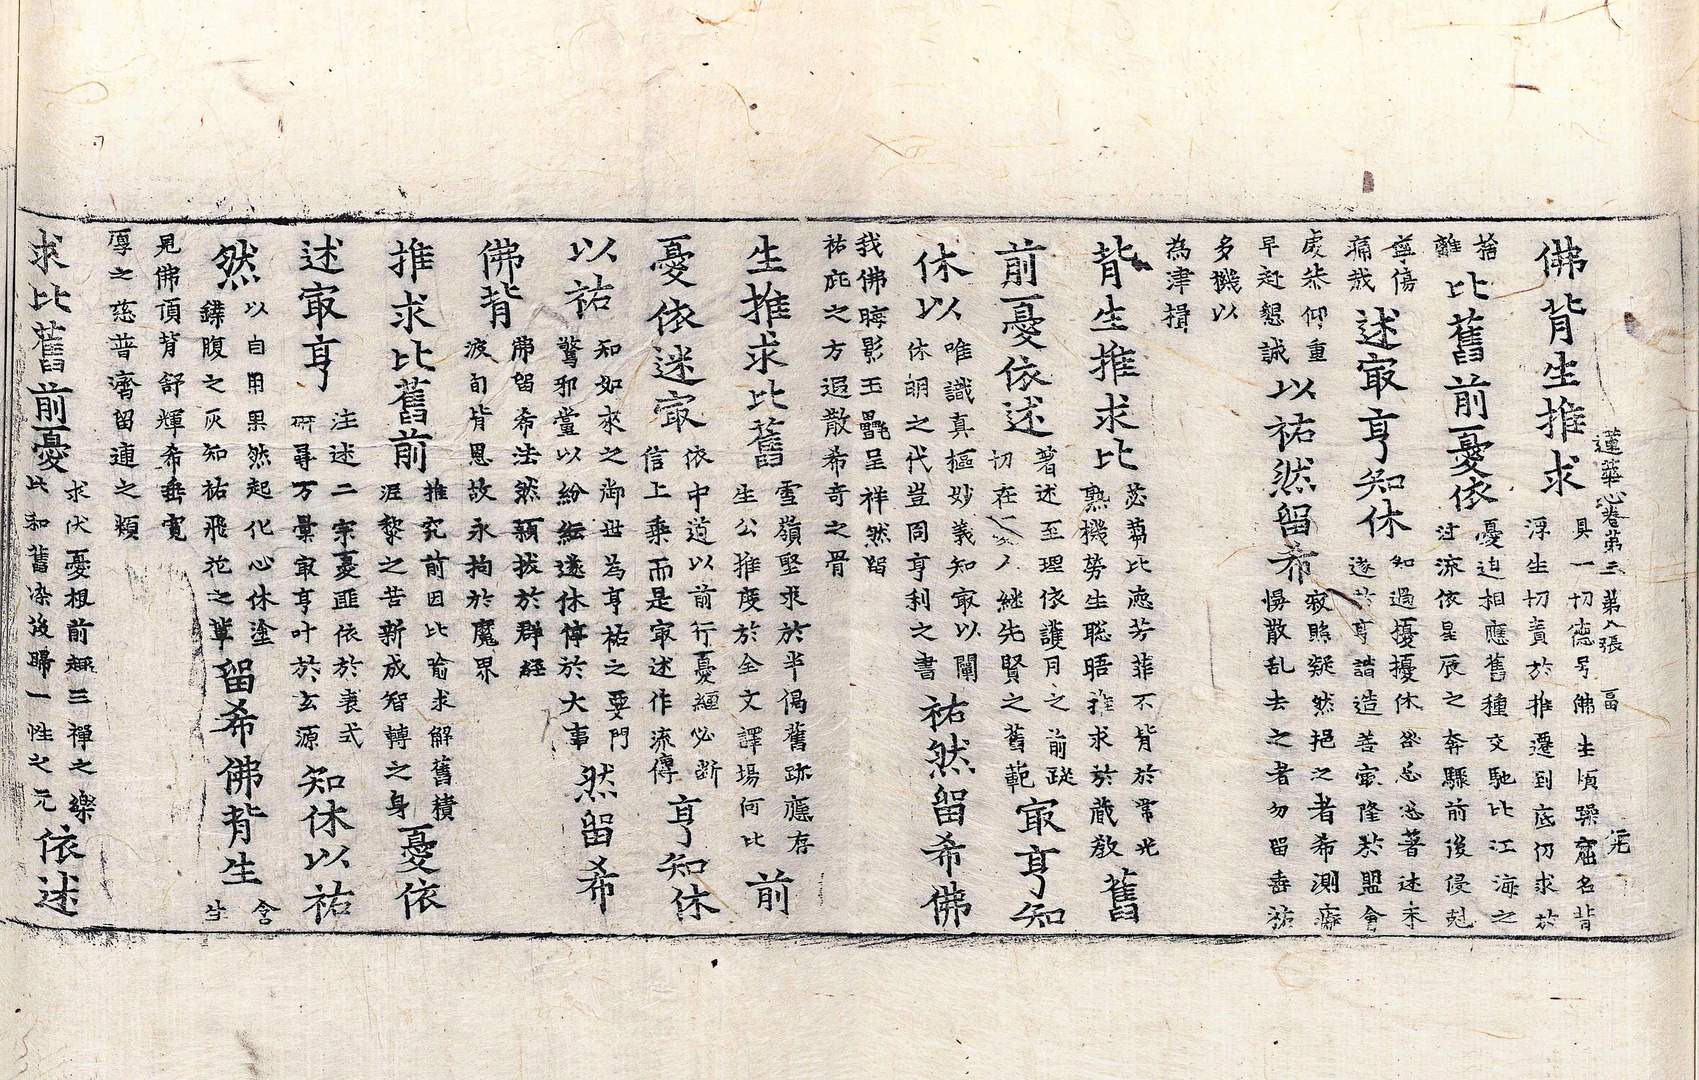 蓮華心卷第三 第八張 畐
佛背生推求
具一切德号佛生順躁窟名背
浮生切責於推遷到底仍求於
捨
離
比舊前憂依
憂迫相應舊種交馳比江海之
過流依星辰之奔驟前後侵尅
寧傷
痛哉
述㝡亨知休
知過擾擾休著述未
遂於亨諧造善㝡隆於盟會
虔恭仰重
早赴懇誠
以祐然留希
寂照凝然挹之者希測癡
散乱去之者勿留垂祐
多機以
為津揖
背生推求比
苾蒭比德芳菲不背於常光
熟機勞生聡晤推求於蔵教
舊
前憂依述
著述至理依護月之前蹤
切在人継先賢之舊範
㝡亨知
休以
唯識真樞妙義知㝡以闡
休明之代豈同亨利之書
祐然留希佛
我佛晦影玉毫呈祥然留
祐庇之方遐散希奇之骨
生推求比舊
雪嶺堅求於半偈舊跡應存
生公推度於全文譯場何比
前
憂依述㝡
依中道以前行憂纒必断
信上乗而是㝡述作流傳
亨知休
以祐
知如來之御世為亨祐之要門
驚邪黨以紛紜遂休停於大事
然留希
佛背
佛留希法然頴拔於群経
波旬背恩故永拘於魔界
推求比舊前
推究前因比喻求解舊積
涯黎之苦新成智轉之身
憂依
述㝡亨
注述二宗憂匪依於裏式
研尋万彙㝡亨叶於玄源
知休以祐
然
以自用果然起化心休塗
鍱腹之灰知祐飛花之葦
留希佛背生
含
生
見佛頂背舒輝希垂寬
厚之慈普濟留連之類
求比舊前憂
求伏憂根前趣三禪之樂
比和舊染後歸一性之元
依述